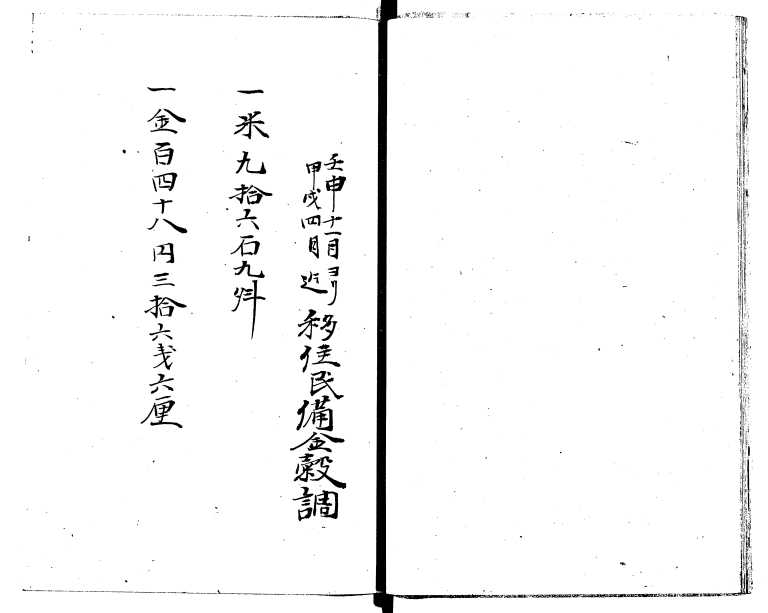 壬申十一月ヨリ
甲戌四月迄
移住民備金穀調
一米九拾六石九斗
一金百四十八円三拾六戔六厘